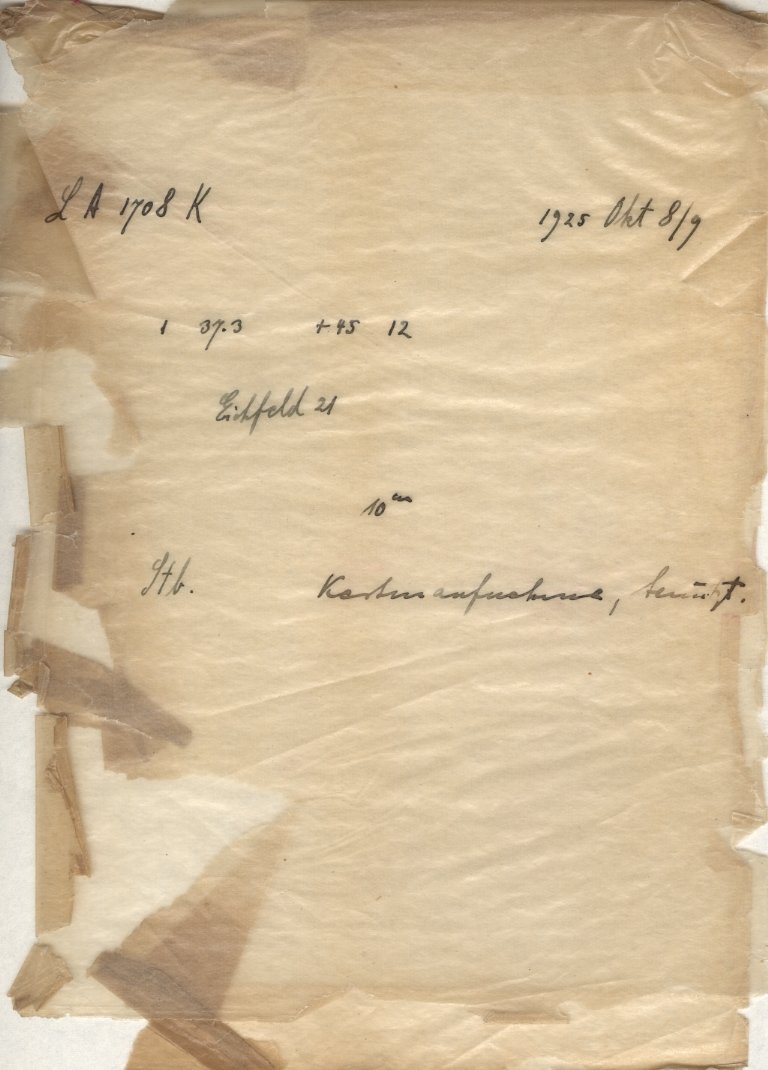 L A 1708 K 1925 Okt 8/9
1 37.3 +45 12
Eichfeld 21
10ᵐ
Stb. Kartenaufnahme, benützt.